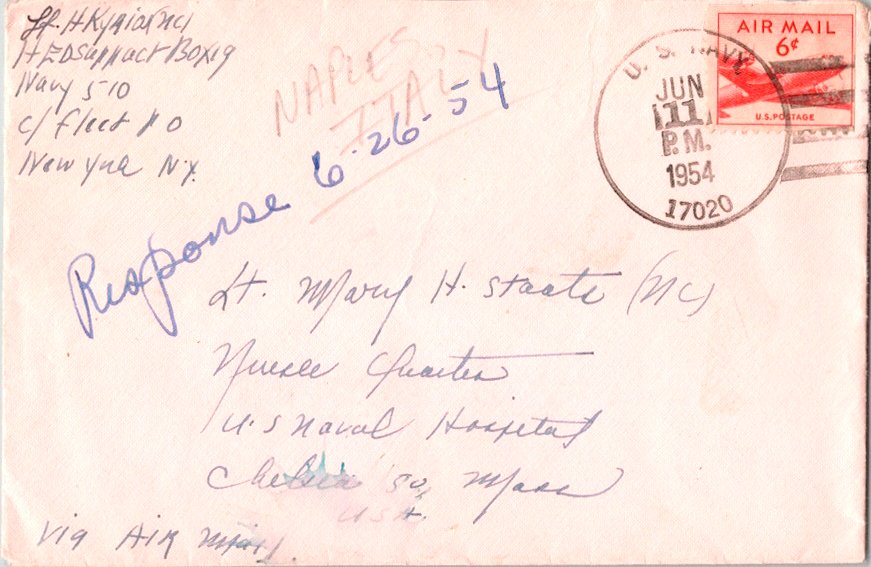 Lt. H
HEDSuppact Box 19
Navy 510
c/o Fleet P O
New York N.Y.
NAPLES
ITALY
Response 6-26-54
U. S. NAVY
JUN
11
P.M.
1954
17020
AIR MAIL
6¢
U.S. POSTAGE
Lt. Mary H. Staats (NC)
Nurse Quarters
U.S Naval Hospital
Chelsea 50, Mass
USA.
Via AIR Mail